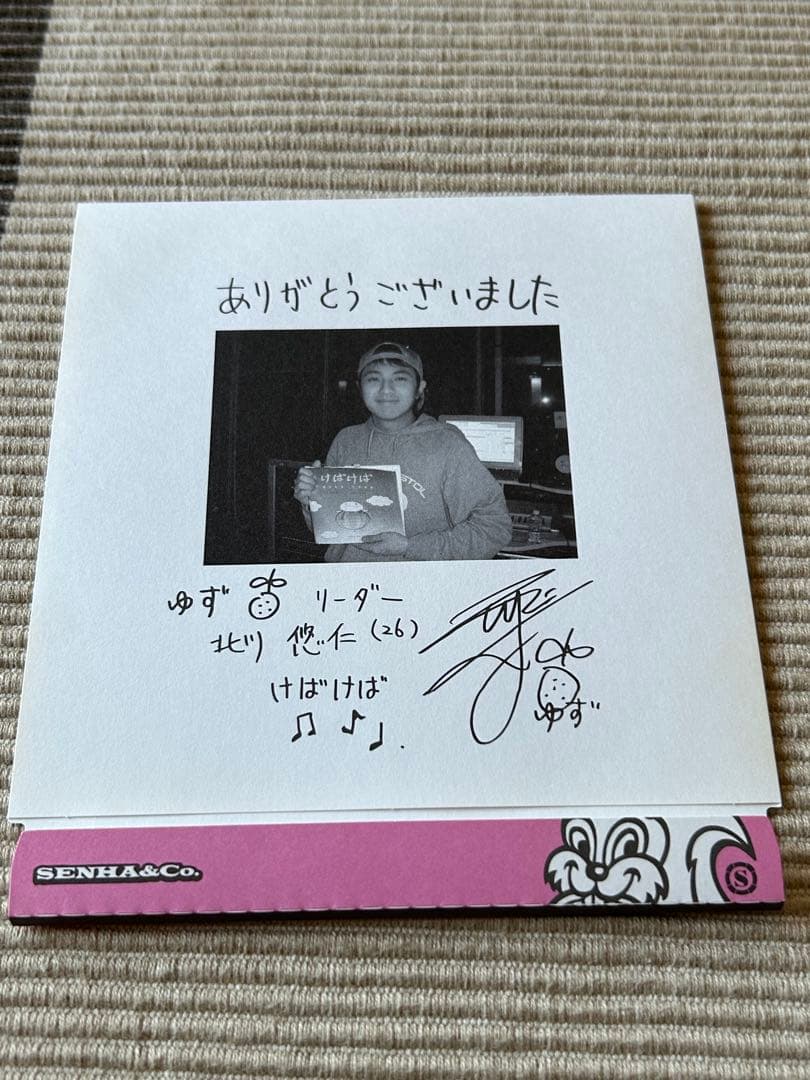 ありがとうございました
けばけば
STOL
ゆず リーダー
北川 悠仁 (26)
けばけば
ゆず
SENHA&Co.
S